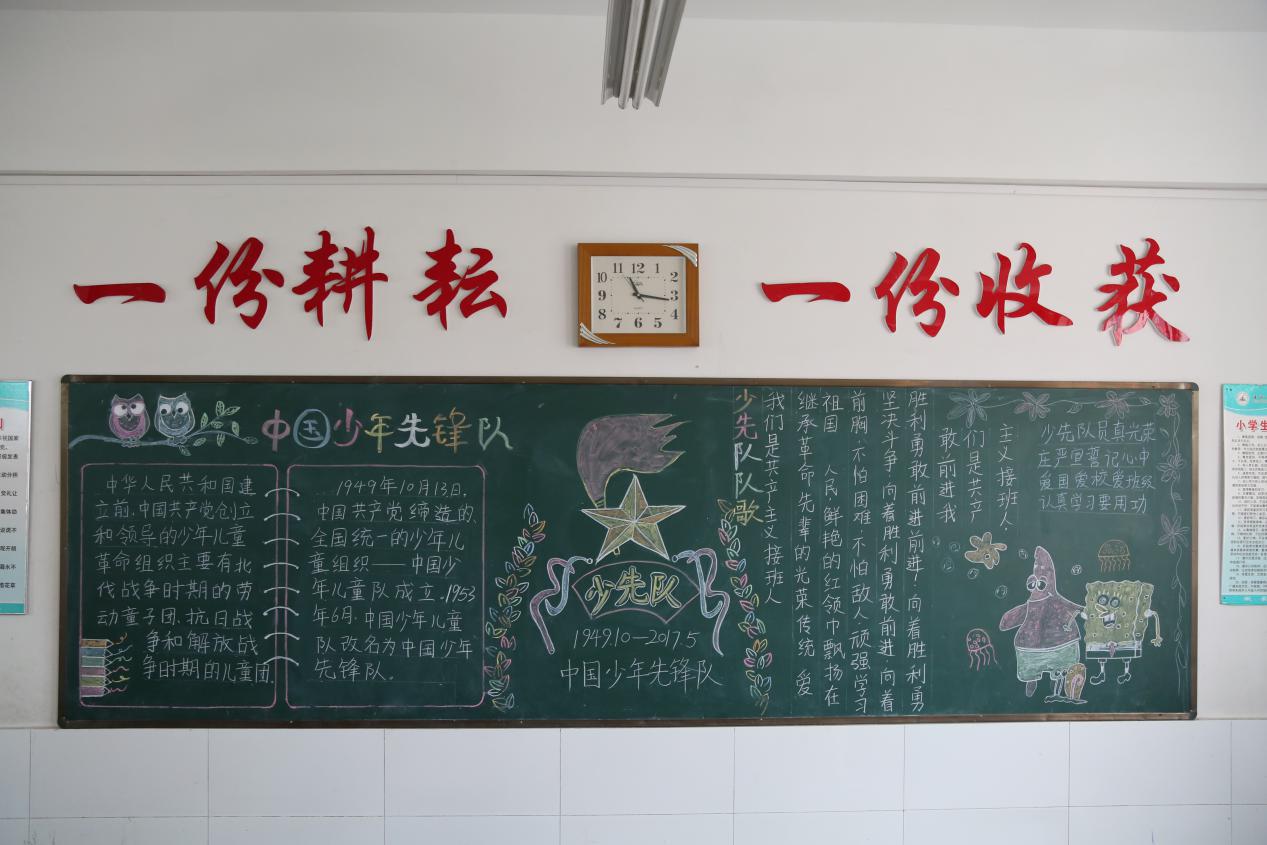 一份耕耘
一份收获
11 12 1
10 2
9 3
8 4
7 6 5
中国少年先锋队
中华人民共和国建
立前,中国共产党创立
和领导的少年儿童
革命组织主要有北
伐战争时期的劳
动童子团、抗日战
争和解放战
争时期的儿童团.
1949年10月13日,
中国共产党缔造的
全国统一的少年儿
童组织——中国少
年儿童队成立。1953
年6月,中国少年儿童
队改名为中国少年
先锋队。
少先队
1949.10—2017.5
中国少年先锋队
少先队队歌
我们是共产主义接班人
继承革命先辈的光荣传统 爱
祖国 人民,鲜艳的红领巾飘扬在
前胸,不怕困难 不怕敌人 顽强学习
坚决斗争,向着胜利勇敢前进,向着
胜利勇敢前进前进!向着胜利勇
敢前进我
们是共产
主义接班人.
少先队员真光荣
庄严宣誓记心中
爱国爱校爱班级
认真学习要用功
小学生